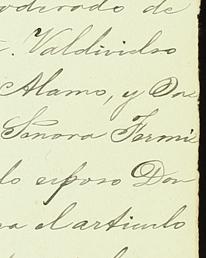 oderado de
Valdivieso
Alamo, y Don
Senora Fermi
lo esposo Don
a el articulo